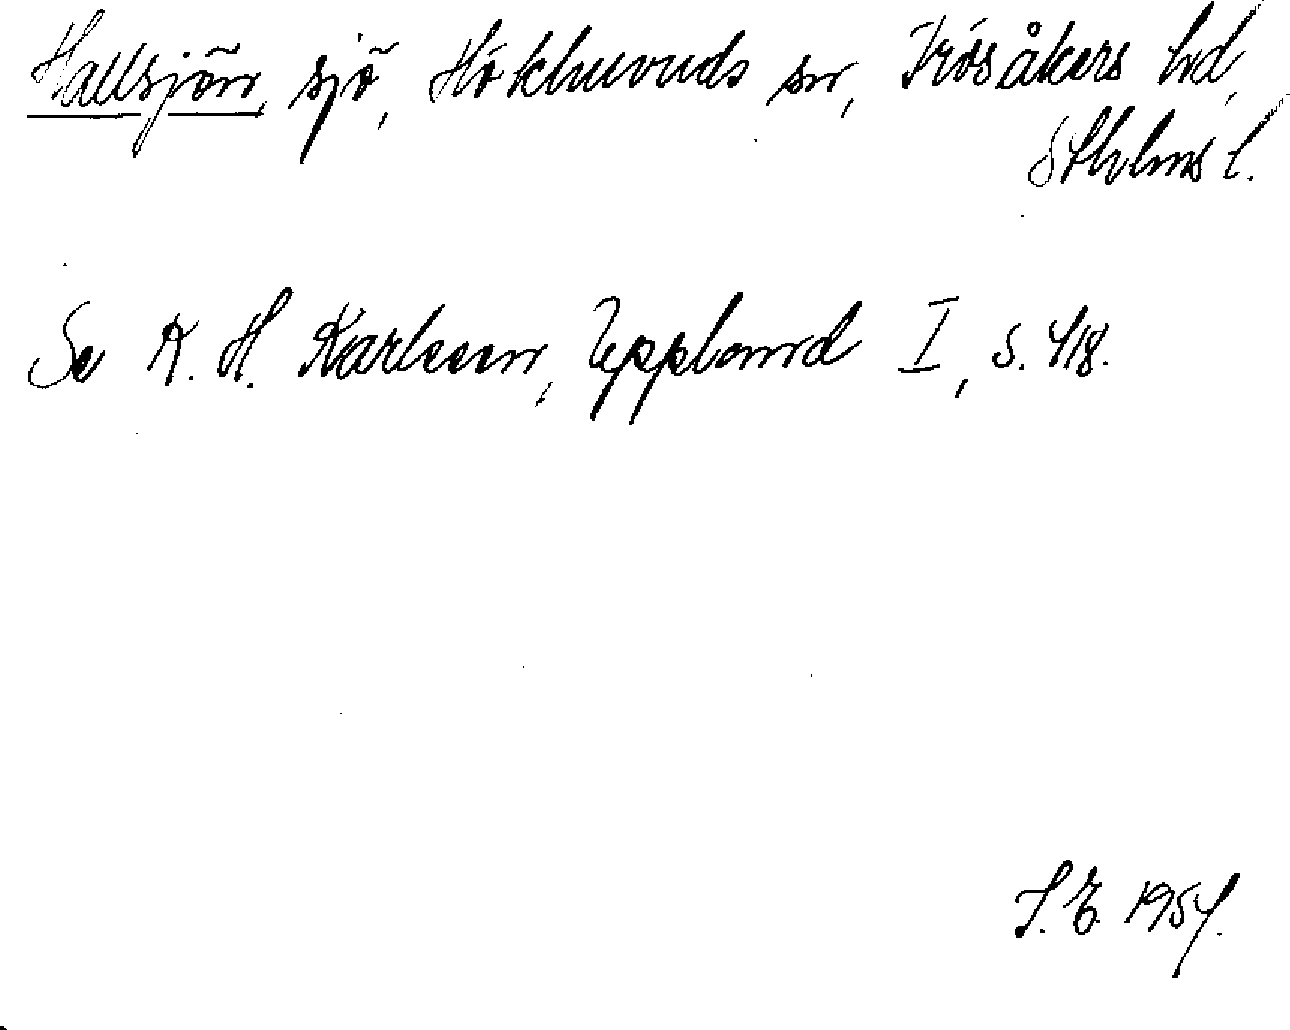 Hallsjön, sjö, Hökhuvuds sn, Frösåkers hd,
Sthlms l.
Se K. H. Karlsson, Uppland I, s. 418.
S. E. 1954.